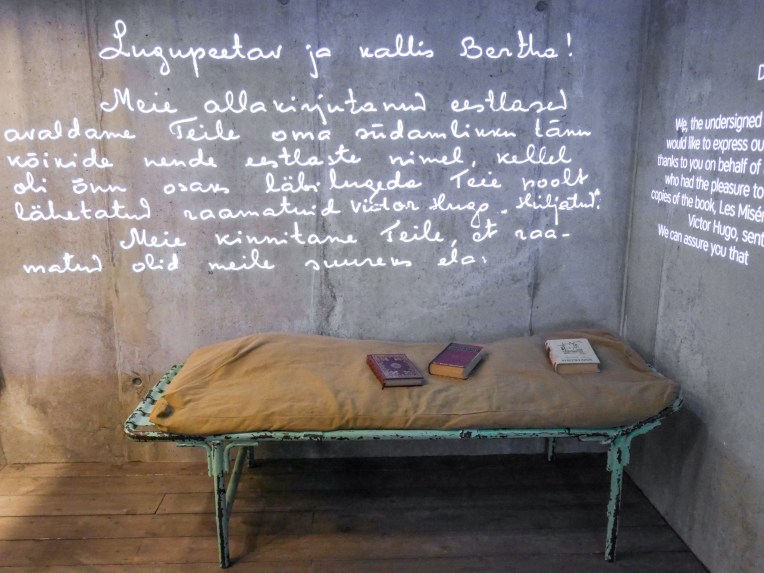 Lugupeetav ja kallis Bertha!
Meie allakirjutanud eestlased
avaldame Teile oma südamlikku tänu
kõikide nende eestlaste nimel, kellel
oli õnn osaks läbi lugeda Teie poolt
lähetatud raamatuid Victor Hugo „Hüljatud".
Meie kinnitame Teile, et raa-
matud olid meile suureks ela-
D
We, the undersigned
would like to express ou
thanks to you on behalf of
who had the pleasure to
copies of the book, Les Misér
Victor Hugo, sent
We can assure you that